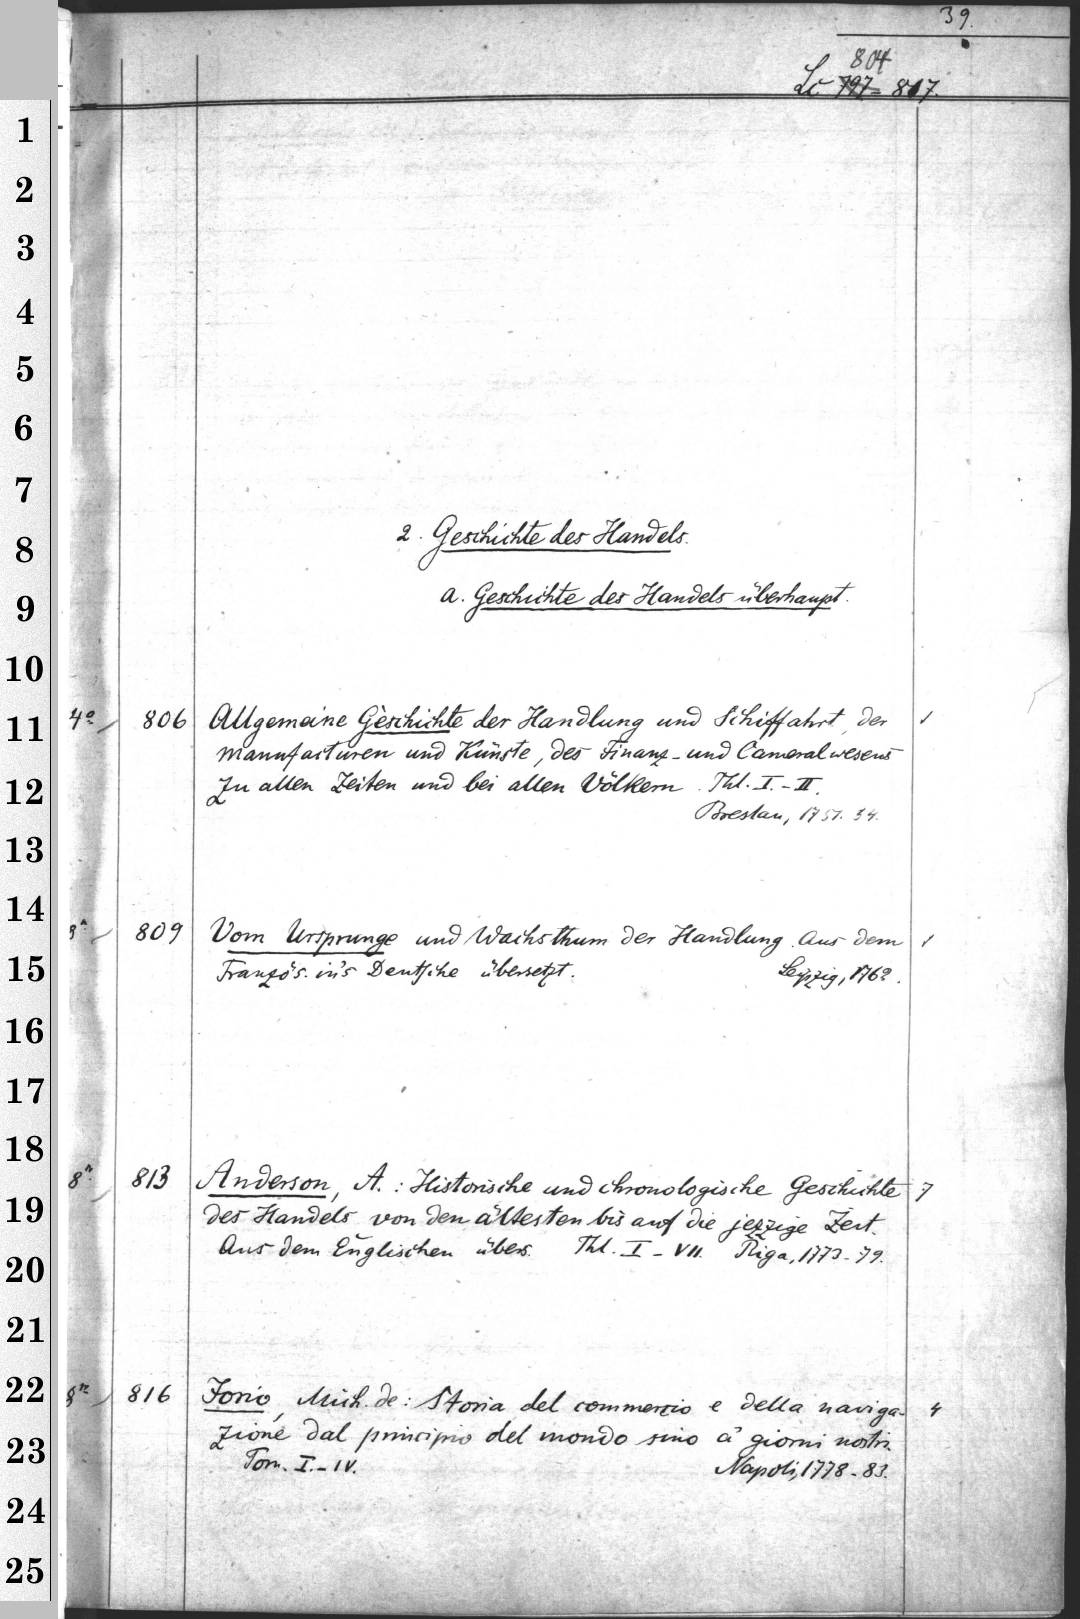 39.
804
Lc 797-817.
2. Geschichte des Handels.
a. Geschichte des Handels überhaupt.
4° 806 Allgemeine Geschichte der Handlung und Schiffahrt, der 1
Manufacturen und Künste, des Finanz- und Cameralwesens
zu allen Zeiten und bei allen Völkern. Thl. I.-II.
Breslau, 1751. 54.
809 Vom Ursprunge und Wachsthum der Handlung. Aus dem 1
Französ. in's Deutsche übersetzt. Leipzig, 1762.
8° 813 Anderson, A.: Historische und chronologische Geschichte 7
des Handels von den ältesten bis auf die jezzige Zeit.
Aus dem Englischen übers. Thl. I-VII. Riga, 1773-79.
816 Jorio, Mich. de: Storia del commercio e della naviga- 4
zione dal principio del mondo sino à giorni nostri.
Tom. I.-IV. Napoli, 1778-83.
1
2
3
4
5
6
7
8
9
10
11
12
13
14
15
16
17
18
19
20
21
22
23
24
25